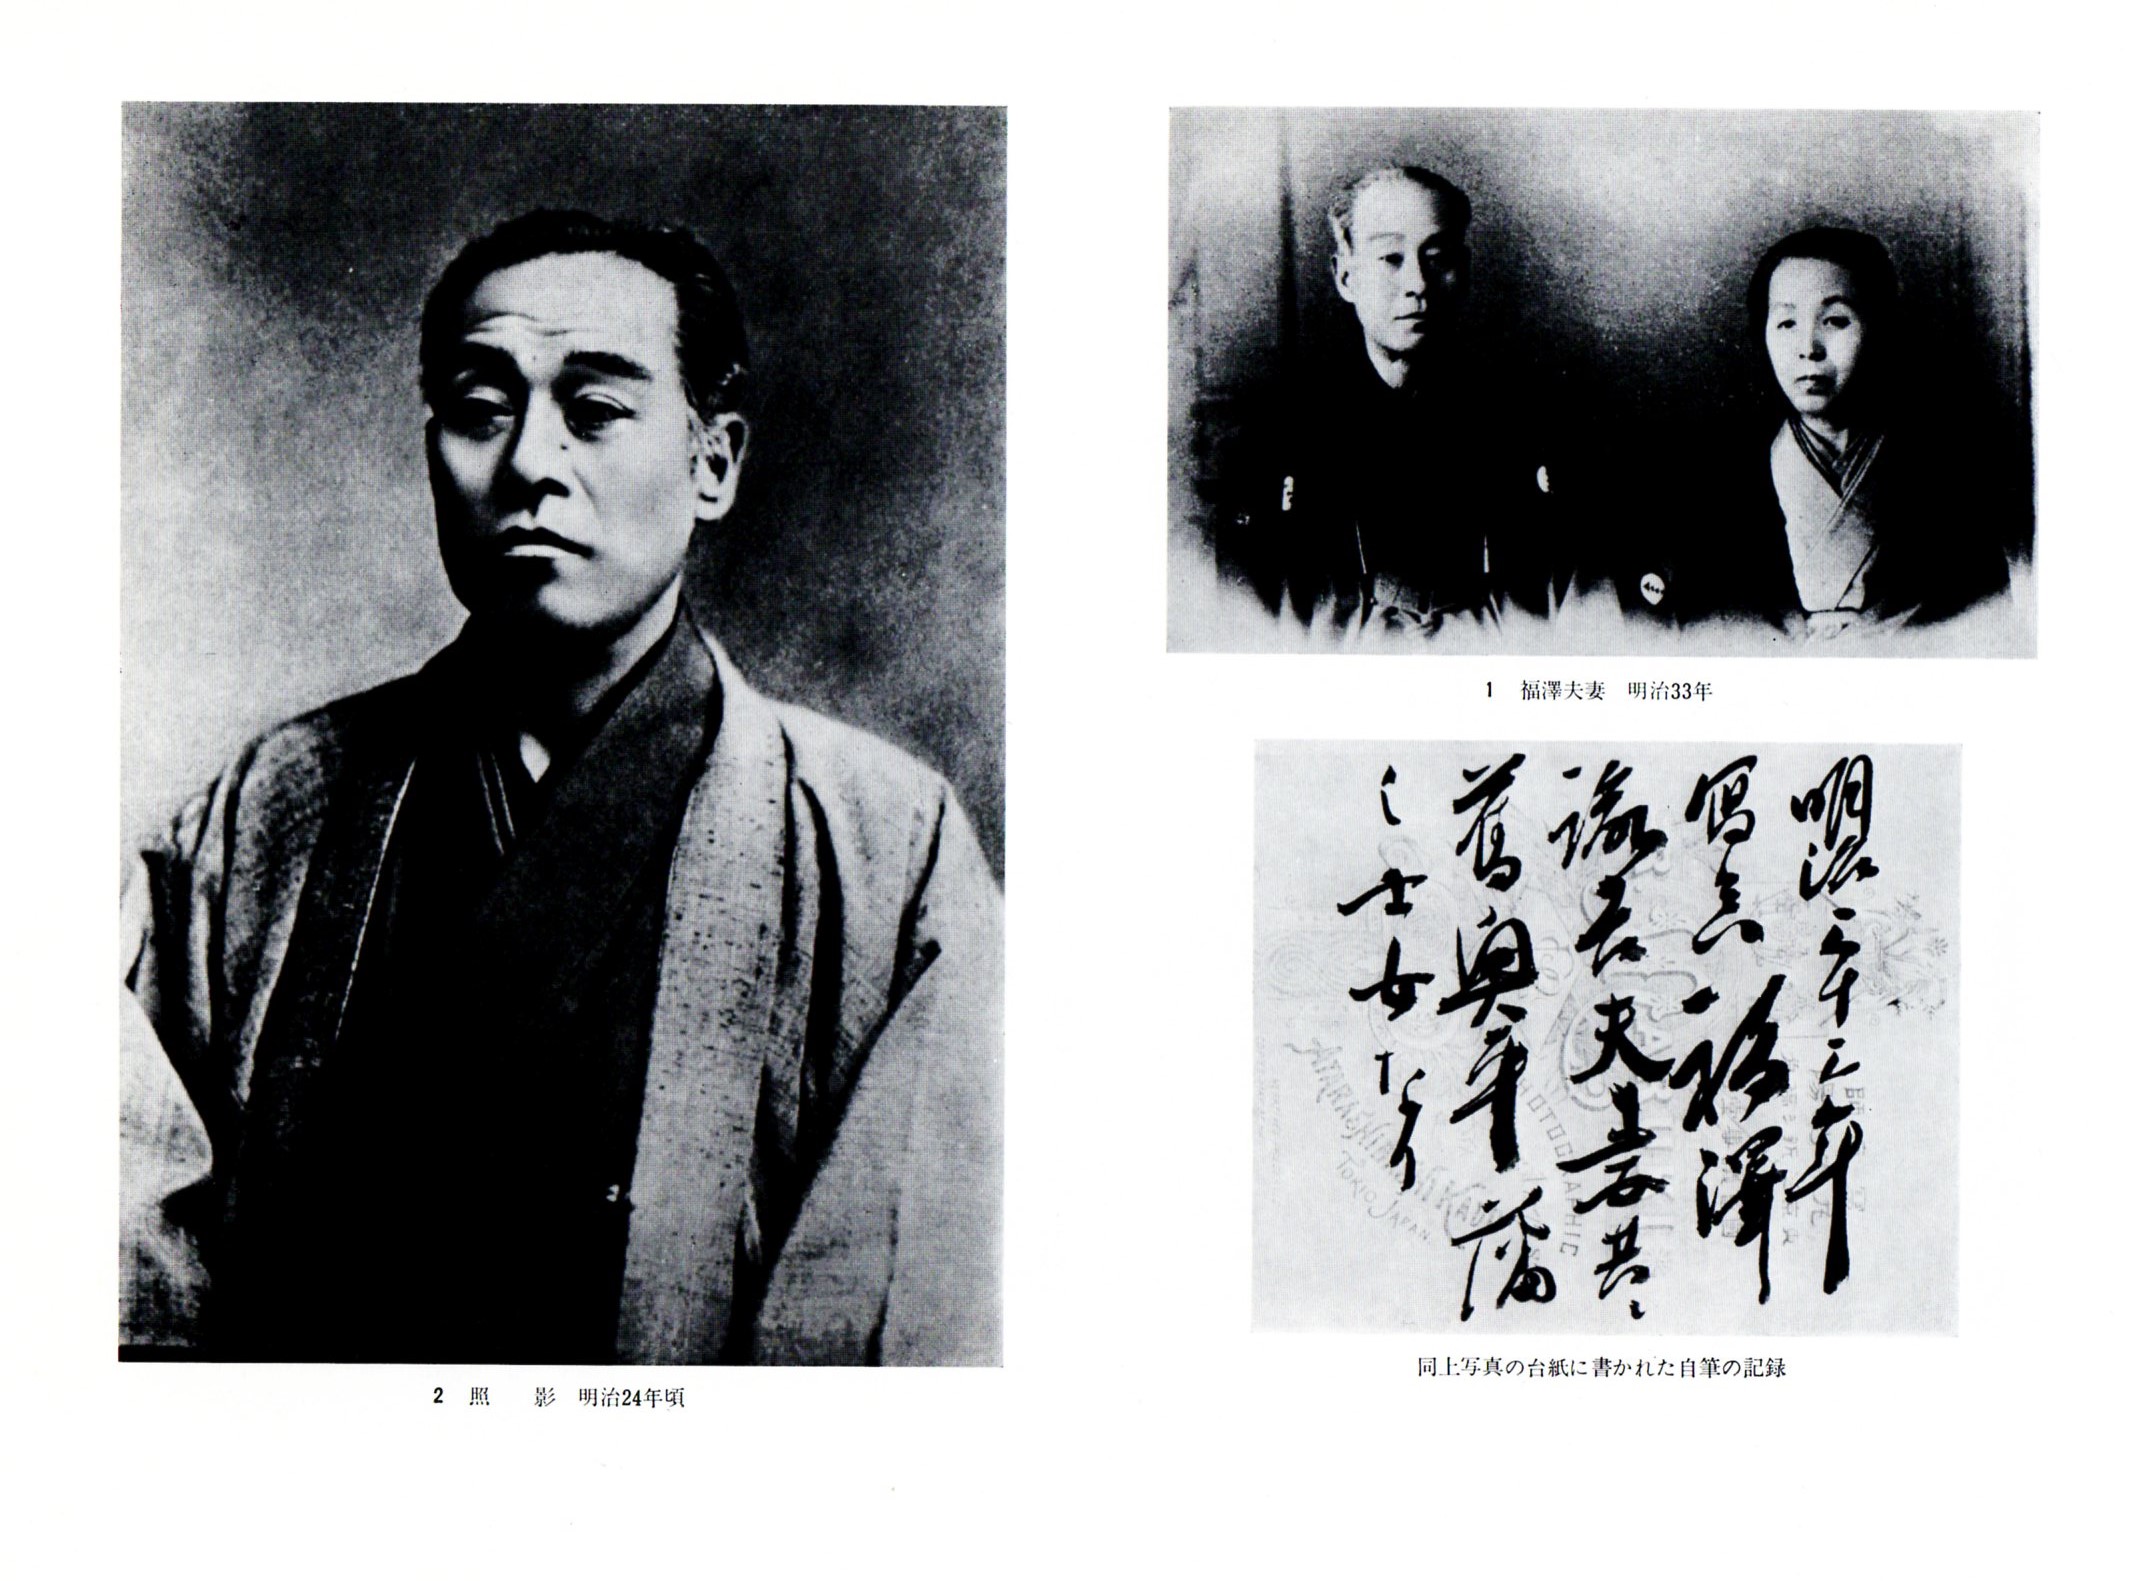 1 福澤夫妻 明治33年
明治三十三年
寫真 福澤
諭吉夫妻共ニ
舊奥平藩
之士女なり
PHOTOGRAPHIC
TOKIO JAPAN
同上写真の台紙に書かれた自筆の記録
2 照 影 明治24年頃